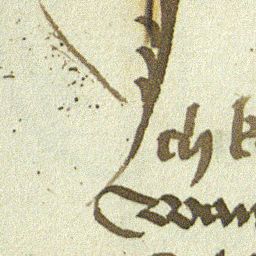 Ich k
Wan